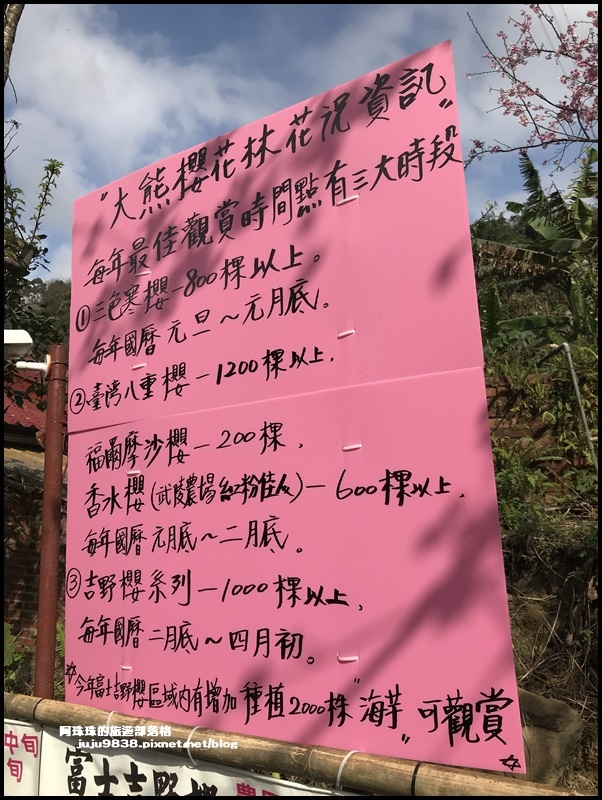 "大熊櫻花林花況資訊"
每年最佳觀賞時間點有三大時段
①三色寒櫻-800棵以上。
每年國曆元旦～元月底。
②臺灣八重櫻-1200棵以上.
福爾摩沙櫻-200棵.
香水櫻(武陵農場紅粉佳人)-600棵以上.
每年國曆元月底～二月底。
③吉野櫻系列-1000棵以上.
每年國曆二月底～四月初。
☆"今年富士吉野櫻區域內有增加種植2000株海芋"可觀賞☆
阿珠珠的旅遊部落格
juju9838.pixnet.net/blog
中旬
旬
富士吉野櫻